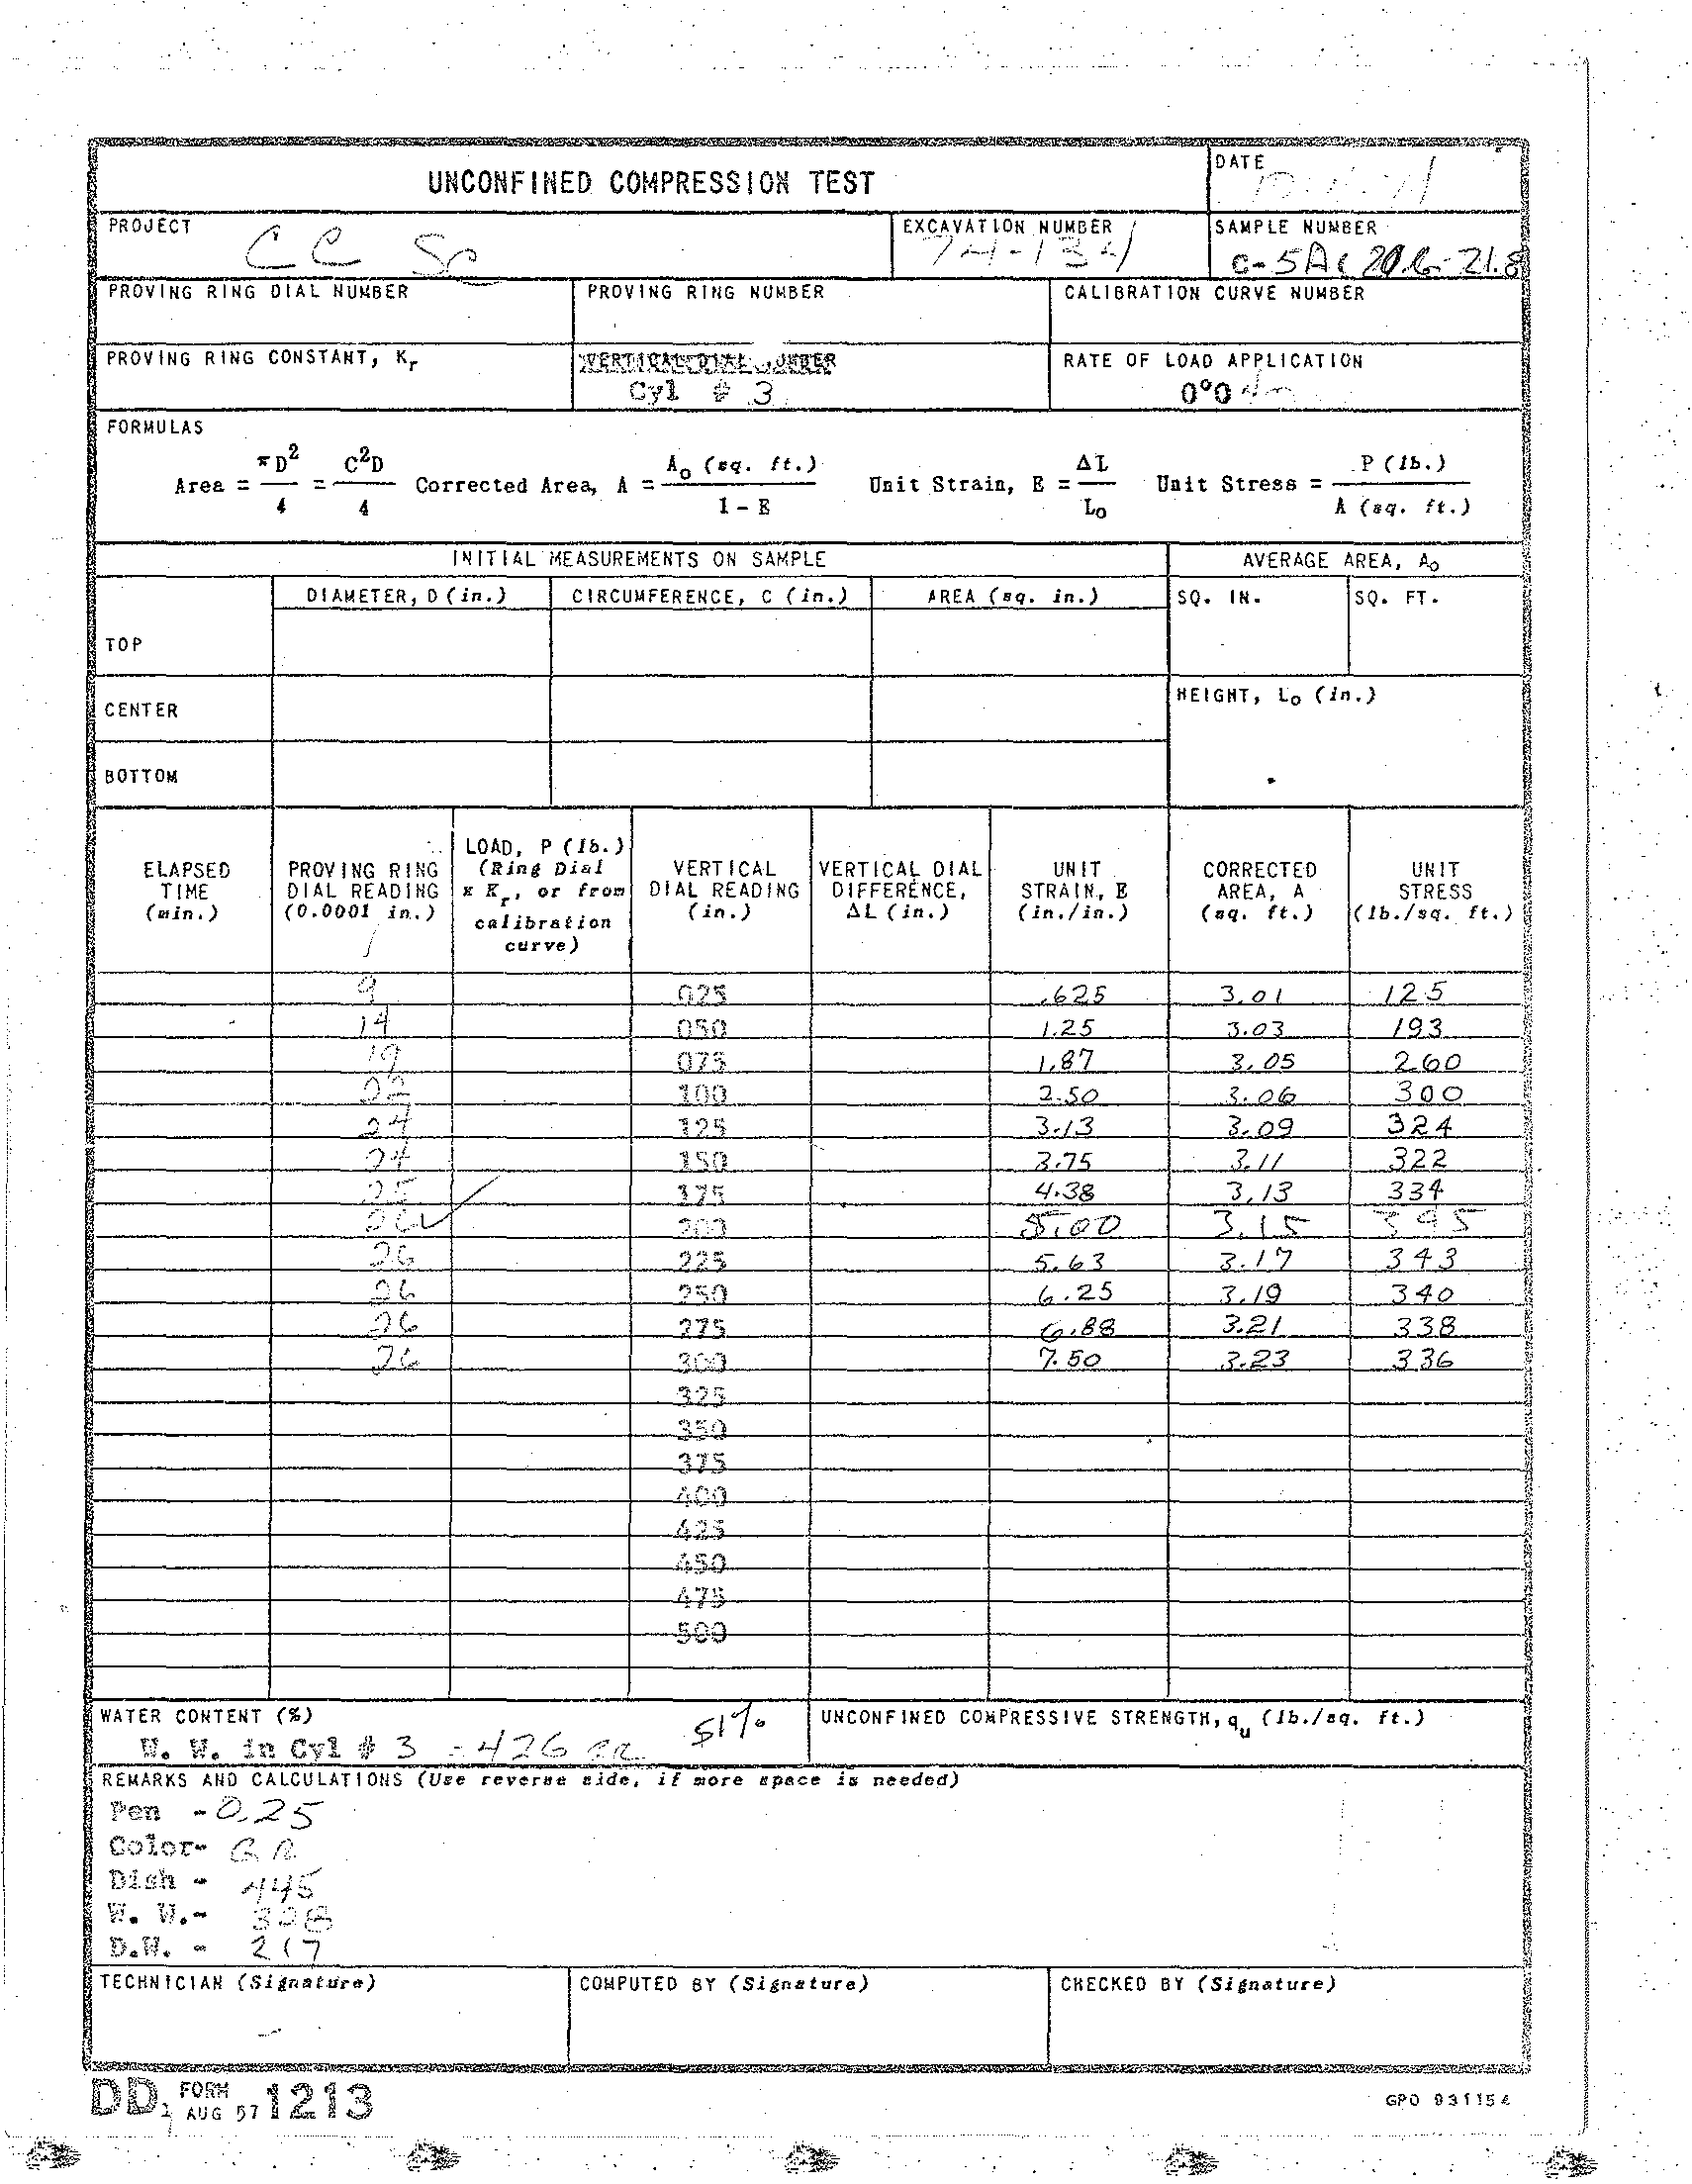 UNCONFINED COMPRESSION TEST
DATE
PROJECT
CC Sp
EXCAVATION NUMBER
74-134
SAMPLE NUMBER
C-5A ( 20.6-21.8
PROVING RING DIAL NUMBER
PROVING RING NUMBER
CALIBRATION CURVE NUMBER
PROVING RING CONSTANT, Kr
Cyl # 3
RATE OF LOAD APPLICATION
FORMULAS
Area = πD²/4 = C²D/4 Corrected Area, A = Ao (sq. ft.)/1 - E Unit Strain, E = ΔL/Lo Unit Stress = P (lb.)/A (sq. ft.)
INITIAL MEASUREMENTS ON SAMPLE
AVERAGE AREA, Ao
DIAMETER, D (in.) CIRCUMFERENCE, C (in.) AREA (sq. in.) SQ. IN. SQ. FT.
TOP
CENTER
HEIGHT, Lo (in.)
BOTTOM
ELAPSED TIME (min.)
PROVING RING DIAL READING (0.0001 in.)
LOAD, P (lb.) (Ring Dial x Kr, or from calibration curve)
VERTICAL DIAL READING (in.)
VERTICAL DIAL DIFFERENCE, ΔL (in.)
UNIT STRAIN, E (in./in.)
CORRECTED AREA, A (sq. ft.)
UNIT STRESS (lb./sq. ft.)
9 025 .625 3.01 125
14 050 1.25 3.03 193
19 075 1.87 3.05 260
22 100 2.50 3.06 300
24 125 3.13 3.09 324
24 150 3.75 3.11 322
25 175 4.38 3.13 334
26 ✓ 200 5.00 3.15 395
26 225 5.63 3.17 343
26 250 6.25 3.19 340
26 275 6.88 3.21 338
26 300 7.50 3.23 336
325
350
375
400
425
450
475
500
WATER CONTENT (%)
W. W. in Cyl # 3 - 426 51%
UNCONFINED COMPRESSIVE STRENGTH, qu (lb./sq. ft.)
REMARKS AND CALCULATIONS (Use reverse side, if more space is needed)
Pen - 0.25
Color- GR
Dish - 445
W. W.- 328
D.W. - 217
TECHNICIAN (Signature)
COMPUTED BY (Signature)
CHECKED BY (Signature)
DD 1 FORM AUG 57 1213
GPO 931154